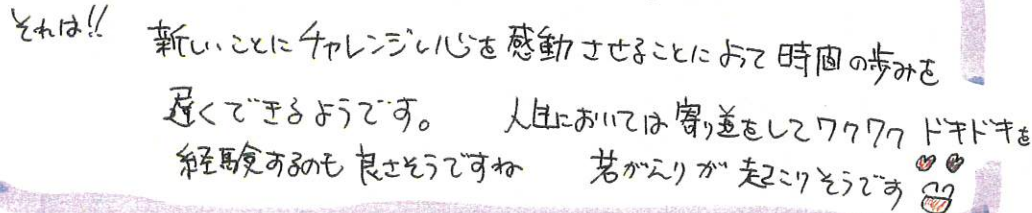 それは!!
新しいことにチャレンジし心を感動させることによって時間の歩みを
遅くできるようです。 人生においては寄り道をしてワクワク ドキドキを
経験するのも良さそうですね 若がえりが起こりそうです